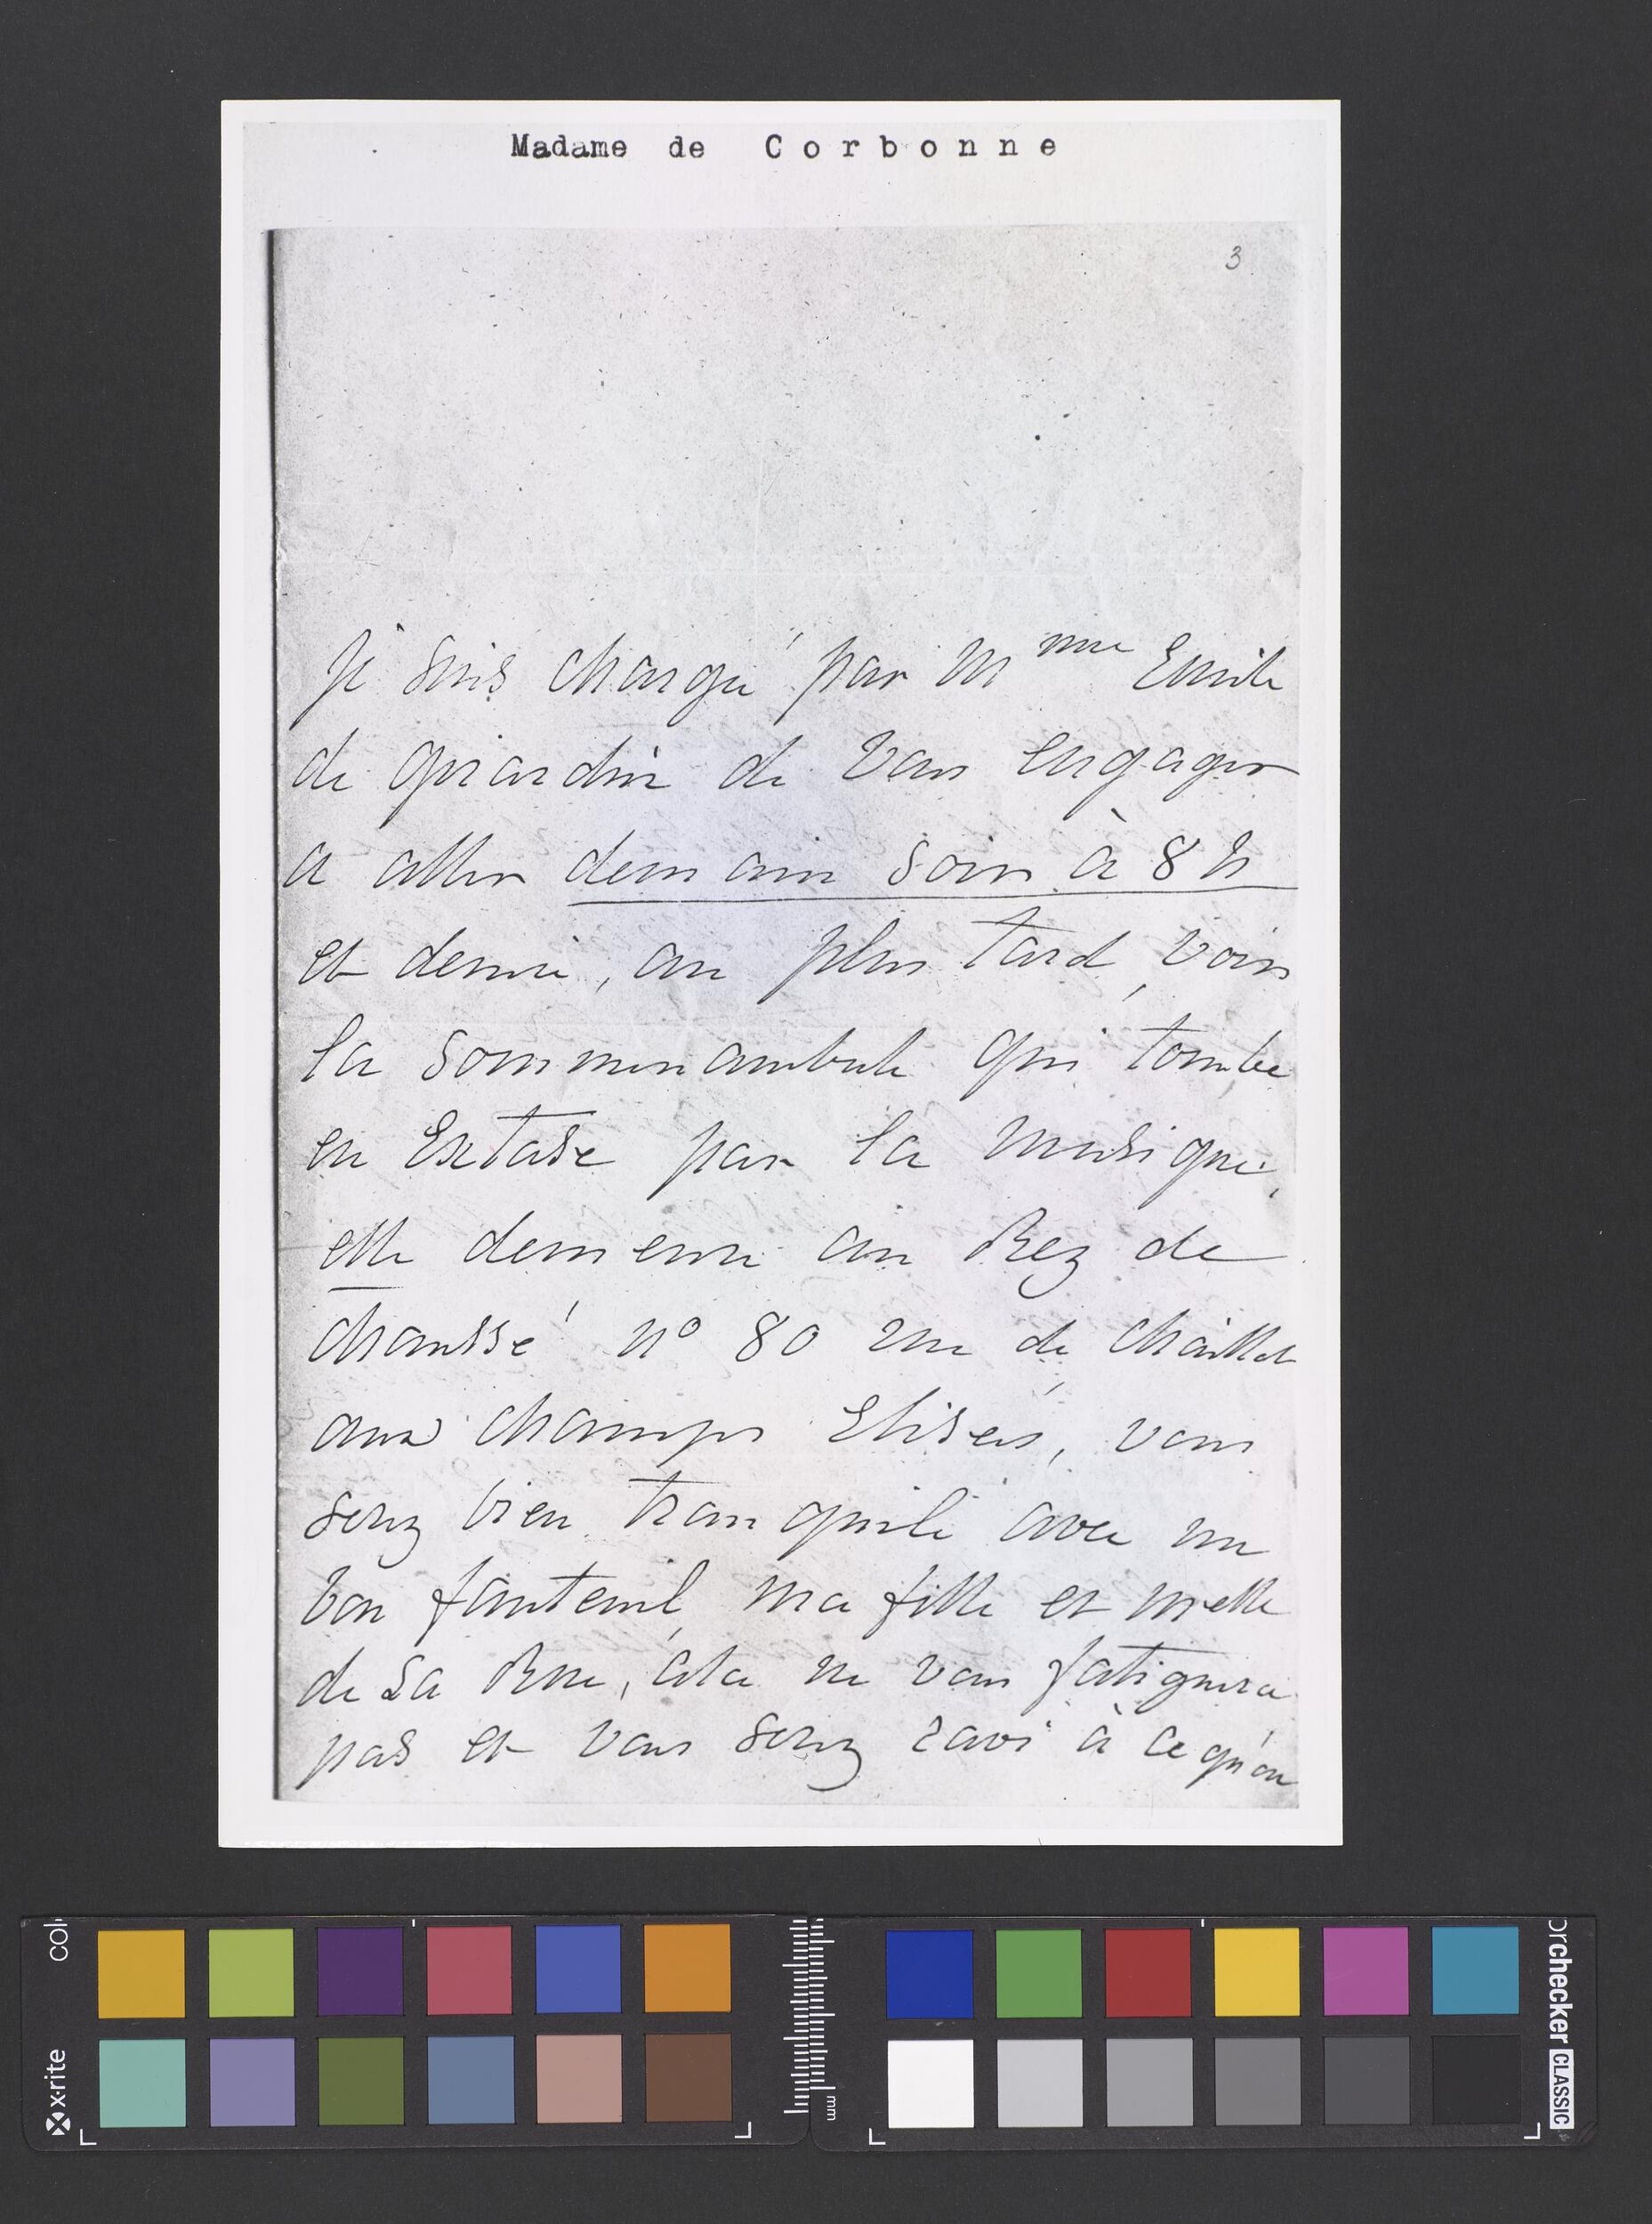 Madame de Corbonne
3
Je suis chargé par Mme Emile
de girardin de vous engager
a aller demain soir à 8 h
et demie, au plus tard, voir
la sommnambule qui tombe
en Extase par la musique,
elle demeure au Rez de
chaussé n° 80 rue de chaillot
aux champs Elisés, vous
serez bien tranquile avec un
bon fauteuil, ma fille et melle
de La Rue, cela ne vous fatiguera
pas et vous serez ravi à ce qu'on
COl
x·rite
mm
orchecker CLASSIC